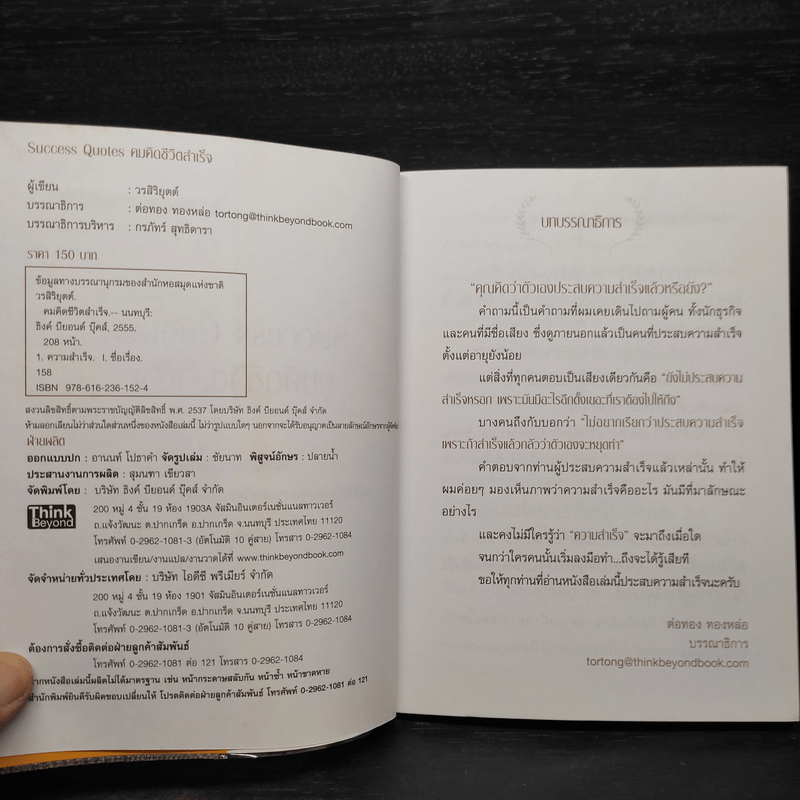 Success Quotes คมคิดชีวิตสำเร็จ
ผู้เขียน : วรสิริยุตต์
บรรณาธิการ : ต่อทอง ทองหล่อ tortong@thinkbeyondbook.com
บรรณาธิการบริหาร : กรภัทร์ สุทธิดารา
ราคา 150 บาท
ข้อมูลทางบรรณานุกรมของสำนักหอสมุดแห่งชาติ
วรสิริยุตต์.
คมคิดชีวิตสำเร็จ.-- นนทบุรี:
ธิงค์ บียอนด์ บุ๊คส์, 2555.
208 หน้า.
1. ความสำเร็จ. I. ชื่อเรื่อง.
158
ISBN 978-616-236-152-4
สงวนลิขสิทธิ์ตามพระราชบัญญัติลิขสิทธิ์ พ.ศ. 2537 โดยบริษัท ธิงค์ บียอนด์ บุ๊คส์ จำกัด
ห้ามลอกเลียนไม่ว่าส่วนใดส่วนหนึ่งของหนังสือเล่มนี้ ไม่ว่ารูปแบบใดๆ นอกจากจะได้รับอนุญาตเป็นลายลักษณ์อักษรจากผู้จัดพิมพ์
ฝ่ายผลิต
ออกแบบปก : อานนท์ โปธาคำ จัดรูปเล่ม : ชัยนาท พิสูจน์อักษร : ปลายน้ำ
ประสานงานการผลิต : สุมนฑา เขียวสา
จัดพิมพ์โดย : บริษัท ธิงค์ บียอนด์ บุ๊คส์ จำกัด
Think
Beyond
200 หมู่ 4 ชั้น 19 ห้อง 1903A จัสมินอินเตอร์เนชั่นแนลทาวเวอร์
ถ.แจ้งวัฒนะ ต.ปากเกร็ด อ.ปากเกร็ด จ.นนทบุรี ประเทศไทย 11120
โทรศัพท์ 0-2962-1081-3 (อัตโนมัติ 10 คู่สาย) โทรสาร 0-2962-1084
เสนองานเขียน/งานแปล/งานวาดได้ที่ www.thinkbeyondbook.com
จัดจำหน่ายทั่วประเทศโดย : บริษัท ไอดีซี พรีเมียร์ จำกัด
200 หมู่ 4 ชั้น 19 ห้อง 1901 จัสมินอินเตอร์เนชั่นแนลทาวเวอร์
ถ.แจ้งวัฒนะ ต.ปากเกร็ด อ.ปากเกร็ด จ.นนทบุรี ประเทศไทย 11120
โทรศัพท์ 0-2962-1081-3 (อัตโนมัติ 10 คู่สาย) โทรสาร 0-2962-1084
ต้องการสั่งซื้อติดต่อฝ่ายลูกค้าสัมพันธ์
โทรศัพท์ 0-2962-1081 ต่อ 121 โทรสาร 0-2962-1084
หากหนังสือเล่มนี้ผลิตไม่ได้มาตรฐาน เช่น หน้ากระดาษสลับกัน หน้าซ้ำ หน้าขาดหาย
สำนักพิมพ์ยินดีรับผิดชอบเปลี่ยนให้ โปรดติดต่อฝ่ายลูกค้าสัมพันธ์ โทรศัพท์ 0-2962-1081 ต่อ 121
บทบรรณาธิการ
"คุณคิดว่าตัวเองประสบความสำเร็จแล้วหรือยัง?"
คำถามนี้เป็นคำถามที่ผมเคยเดินไปถามผู้คน ทั้งนักธุรกิจ
และคนที่มีชื่อเสียง ซึ่งดูภายนอกแล้วเป็นคนที่ประสบความสำเร็จ
ตั้งแต่อายุยังน้อย
แต่สิ่งที่ทุกคนตอบเป็นเสียงเดียวกันคือ "ยังไม่ประสบความ
สำเร็จหรอก เพราะมันมีอะไรอีกตั้งเยอะที่เราต้องไปให้ถึง"
บางคนถึงกับบอกว่า "ไม่อยากเรียกว่าประสบความสำเร็จ
เพราะถ้าสำเร็จแล้วกลัวว่าตัวเองจะหยุดทำ"
คำตอบจากท่านผู้ประสบความสำเร็จแล้วเหล่านั้น ทำให้
ผมค่อยๆ มองเห็นภาพว่าความสำเร็จคืออะไร มันมีที่มาลักษณะ
อย่างไร
และคงไม่มีใครรู้ว่า "ความสำเร็จ" จะมาถึงเมื่อใด
จนกว่าใครคนนั้นเริ่มลงมือทำ...ถึงจะได้รู้เสียที
ขอให้ทุกท่านที่อ่านหนังสือเล่มนี้ประสบความสำเร็จนะครับ
ต่อทอง ทองหล่อ
บรรณาธิการ
tortong@thinkbeyondbook.com